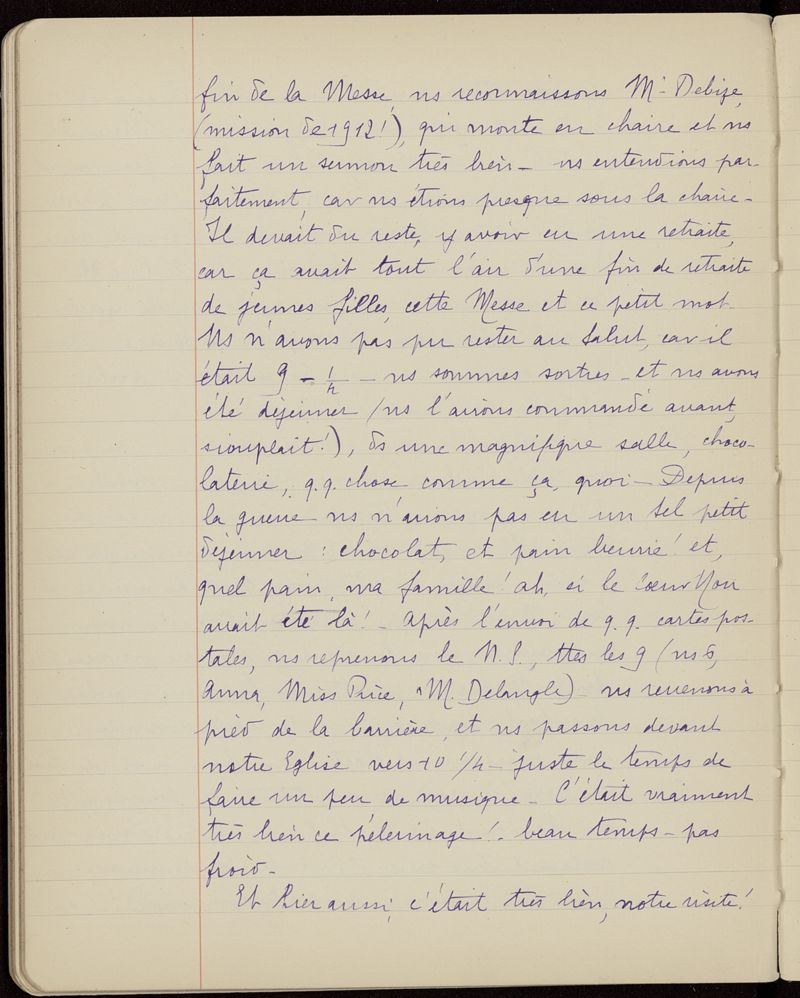 fin de la Messe, ns reconnaissons Mr Debize,
(mission de 1912!), qui monte en chaire et ns
fait un sermon très bien - ns entendions par-
faitement, car ns étions presque sous la chaire -
Il devait du reste, y avoir eu une retraite,
car ça avait tout l'air d'une fin de retraite
de jeunes filles, cette Messe et ce petit mot -
Ns n'avons pas pu rester au Salut, car il
était 9 - 1/2 - ns sommes sorties - et ns avons
été déjeuner (ns l'avions commandé avant,
siouplait!), ds une magnifique salle, choco-
laterie, q.q. chose comme ça, quoi - Depuis
la guerre ns n'avions pas eu un tel petit
déjeuner : chocolat, et pain beurré! et,
quel pain, ma famille! ah, si le
avait été là! - Après l'envoi de q.q. cartes pos-
tales, ns reprenons le N.S., ttes les 9 (ns 6,
Anna, Miss Price, M. Delangle) - ns revenons à
pied de la barrière, et ns passons devant
notre Eglise vers 10 1/2 - juste le temps de
faire un peu de musique - C'était vraiment
très bien ce pélerinage! - beau temps - pas
froid -
Et hier aussi, c'était très bien, notre visite!